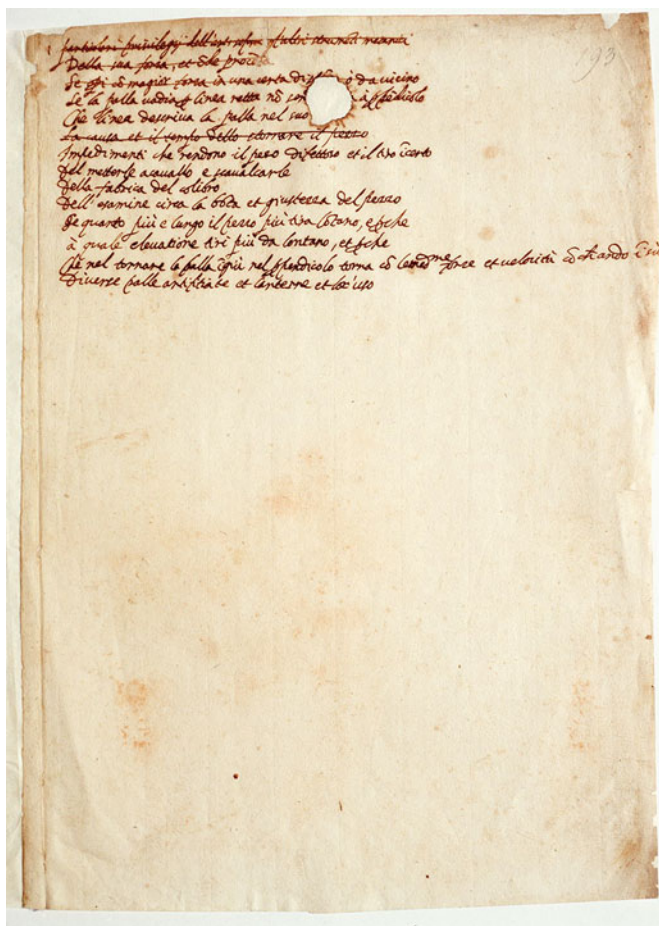 193
particolari privilegij dell'artiglieria sopra gl'altri strumenti mecanici
Della sua forza, et da che proceda
Se operi cō magior forza in una certa distanza o da vicino
Se la palla vadia p linea retta nō sendo tirata a ppēdicolo
Che linea descriva la palla nel suo
La causa et il tempo dello stornare il pezzo
Impedimenti che rendono il pezo difettoso et il tiro īcerto
del metterle acavallo e scavalcarle
della fabrica del colibro
Dell'esamine circa la bōta et giustezza del pezzo
Se quanto più e lungo il pezzo più tira lōtano, e pche
à quale elevatione tiri più da lontano, et pche
Che nel tornare la palla īgiù nel ppendicolo torna cō le med.me forze et velocità cō che andò ī sù
Diverse palle artifitiate et lanterne et loro uso